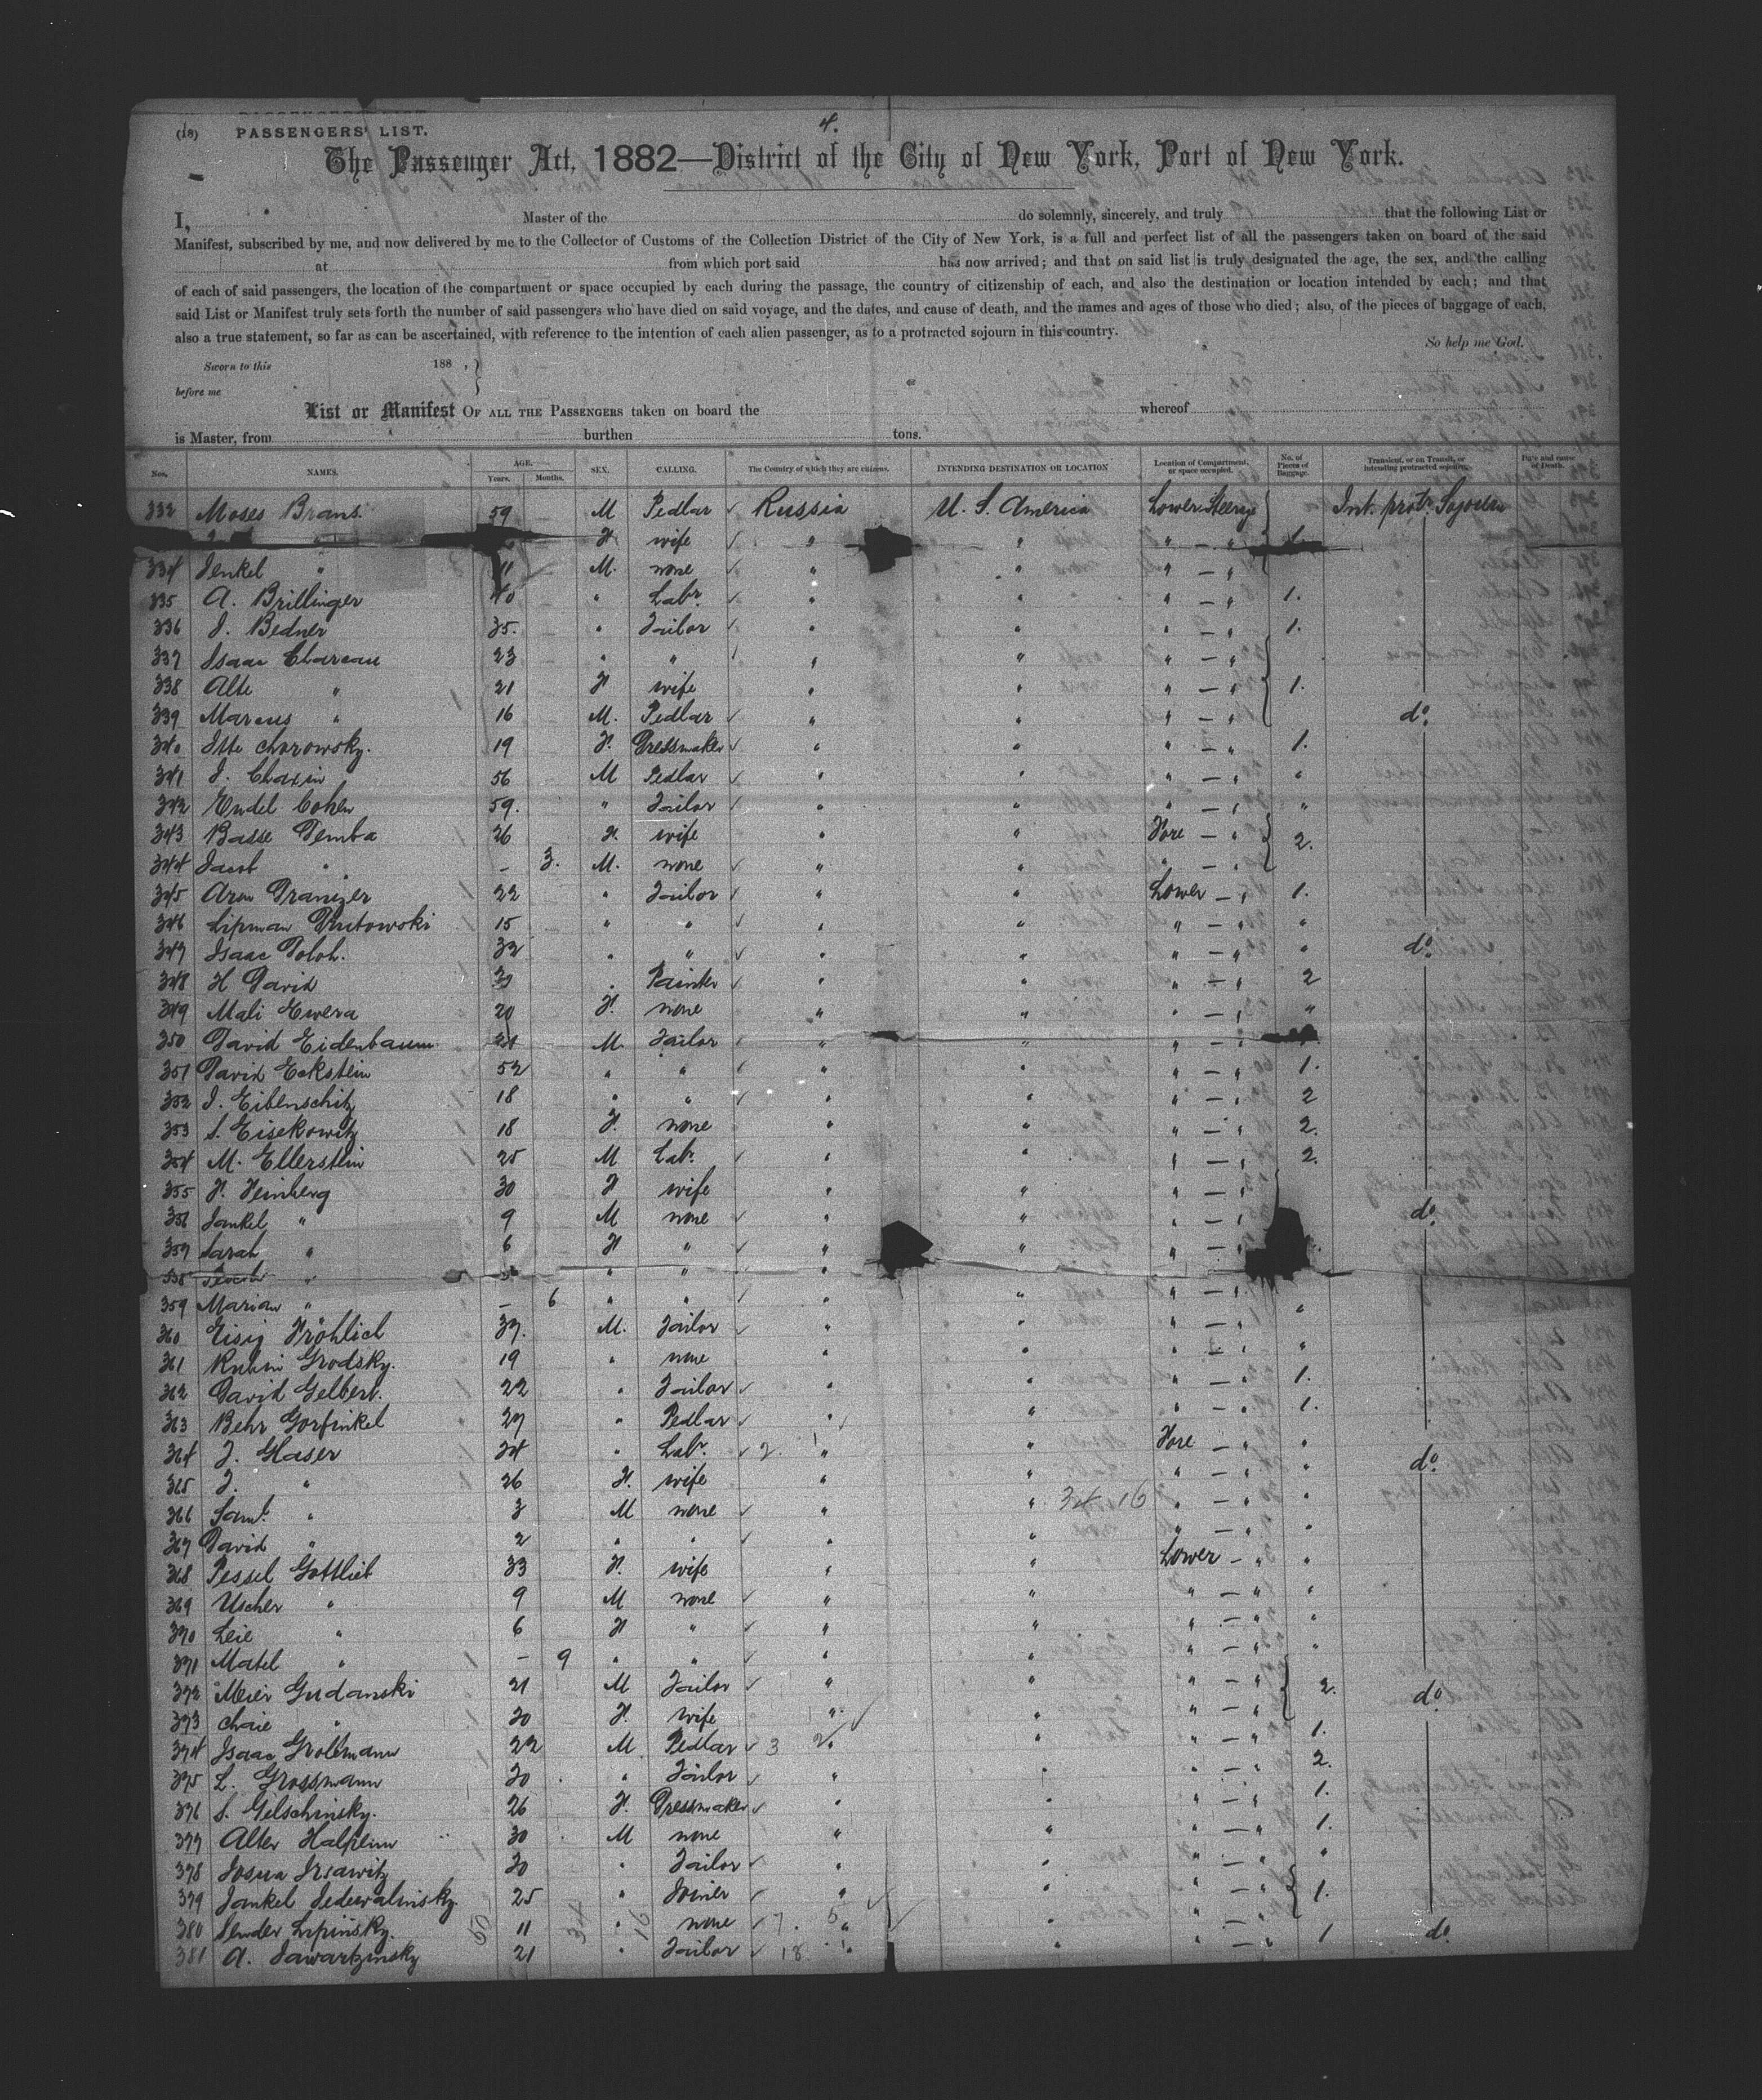 (18) PASSENGERS' LIST. 4.
The Passenger Act, 1882—District of the City of New York, Port of New York.
I, Master of the do solemnly, sincerely, and truly that the following List or
Manifest, subscribed by me, and now delivered by me to the Collector of Customs of the Collection District of the City of New York, is a full and perfect list of all the passengers taken on board of the said
at from which port said has now arrived; and that on said list is truly designated the age, the sex, and the calling
of each of said passengers, the location of the compartment or space occupied by each during the passage, the country of citizenship of each, and also the destination or location intended by each; and that
said List or Manifest truly sets forth the number of said passengers who have died on said voyage, and the dates, and cause of death, and the names and ages of those who died; also, of the pieces of baggage of each,
also a true statement, so far as can be ascertained, with reference to the intention of each alien passenger, as to a protracted sojourn in this country.
So help me God.
Sworn to this 188 ,
before me
List or Manifest OF ALL THE PASSENGERS taken on board the whereof
is Master, from burthen tons.
Nos. NAMES. AGE. Years. Months. SEX. CALLING. The Country of which they are citizens. INTENDING DESTINATION OR LOCATION Location of Compartment, or space occupied. No. of Pieces of Baggage. Transient, or on Transit, or intending protracted sojourn. Date and cause of Death.
332 Moses Brans. 59 M Pedlar Russia U. S. America Lower Steerge Int. prot. Sojourn
" F wife " " " — " 1.
334 Jenkel " 11 M. none " " " — "
335 A. Brillinger 40 " Labr. " " " — " 1.
336 J. Bedner 35. " Tailor " " " — " 1.
337 Isaac Chareau 23 " " " " " — "
338 Alte " 21 F wife " " " — " 1.
339 Marcus " 16 M. Pedlar " " " — " do.
340 Itte Charowsky. 19 F. Dressmaker " " " — " 1.
341 J. Chasin 56 M Pedlar " " " — " "
342 Endel Cohen 59. " Tailor " " " — " "
343 Basse Demba 26 F. wife " " Fore — " 2.
344 Jacob " – 3. M. none " " " — "
345 Aron Dranizer 22 " Tailor " " Lower — " 1.
346 Lipman Drutowski 15 " " " " " — " "
347 Isaac Doloh. 32 " " " " " — " " do.
348 H David " Painter " " " — " 2
349 Mali Ewera 20 F. none " " " — " "
350 David Eidenbaum. M. Tailor " " " — "
351 David Eckstein 52 " " " " " — " 1.
352 J. Eibenschitz 18 " " " " " — " 2
353 S. Eisekowitz 18 F. none " " " — " 2.
354 M. Ellerstein 25 M Labr. " " " — " 2.
355 F. Feinberg 30 F wife " " " — "
356 Jankel " 9 M none " " " — " do.
357 Sarah " 6 F " " " " — "
358 " " " "
359 Marian " – 6 " " " " " — " "
360 Eisig Fröhlich 37. M. Tailor " " " — "
361 Rubin Grodsky. 19 " none " " " — " "
362 David Gelbert. 22 " Tailor " " " — " 1.
363 Behr Gorfinkel 27 " Pedlar " " " — " 1.
364 J. Glaser 24 " Labr. 2. " " Fore — " " do.
365 J. " 26 F. wife " " " — " "
366 Saml. " 3 M none " " 34 16 " — " "
367 David " 2 " " " " " — " "
368 Pessel Gottlieb 33 F. wife " " Lower — " "
369 Uscher " 9 M none " " " — " "
370 Leie " 6 F " " " " — " "
371 Matel " – 9 " " " " " — " "
372 Meier Gudanski 21 M Tailor " " " — " 2. do
373 Chaie " 20 F. wife " " " — "
374 Isaac Grolemann 22 M. Pedlar 3 2 " " " — " 1.
375 L. Grossmann 30 " Tailor " " " — " 2.
376 S. Gelschinsky. 26 F. Dressmaker " " " — " 1.
377 Alter Halpern 30 M none " " " — " 1.
378 Josua Irsawitz 20 " Tailor " " " — " "
379 Jankel Jedewalinsky. 25 " Joiner " " " — " 1.
380 Sender Lipinsky. 50 11 34 " 16 none 7. 5 " " " — "
381 A. Jawartzinsky 21 " Tailor 18 " " " — " 1 do.